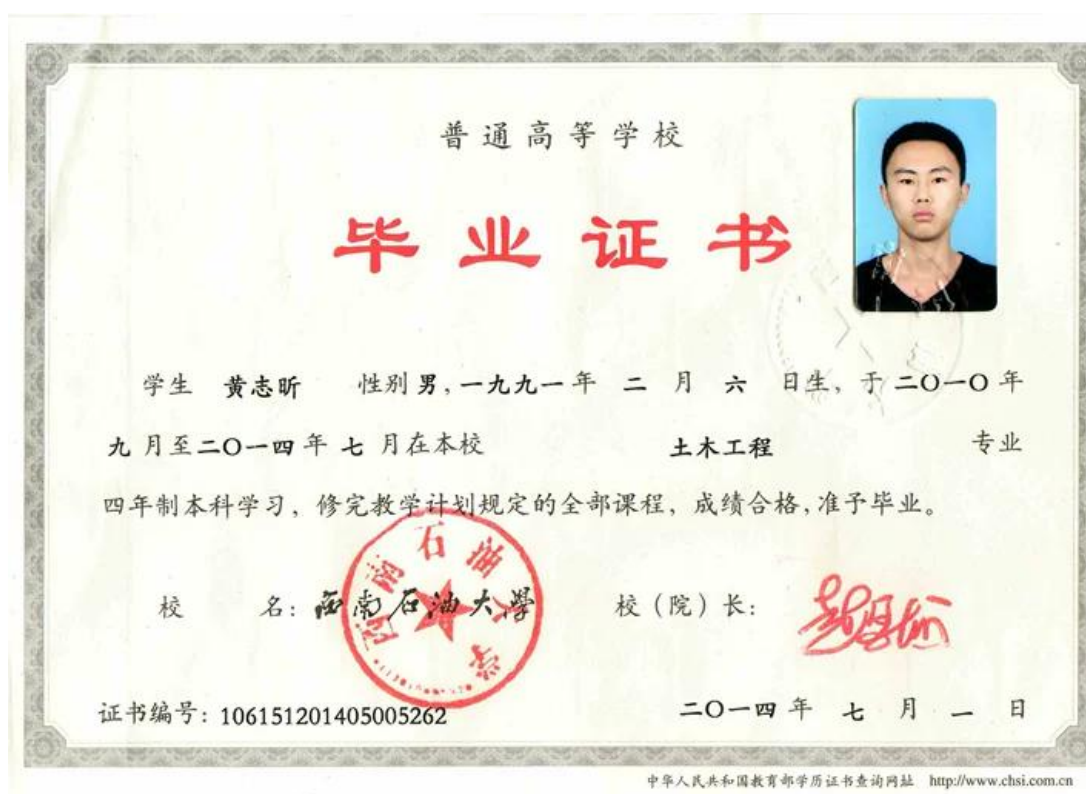 普通高等学校
毕业证书
学生 黄志昕 性别 男，一九九一 年 二 月 六 日生，于 二〇一〇 年
九 月至 二〇一四 年 七 月在本校 土木工程 专业
四年制本科学习，修完教学计划规定的全部课程，成绩合格，准予毕业。
校 名：西南石油大學
西南石油大学
校（院）长：
证书编号：106151201405005262
二〇一四 年 七 月 一 日
中华人民共和国教育部学历证书查询网址 http://www.chsi.com.cn